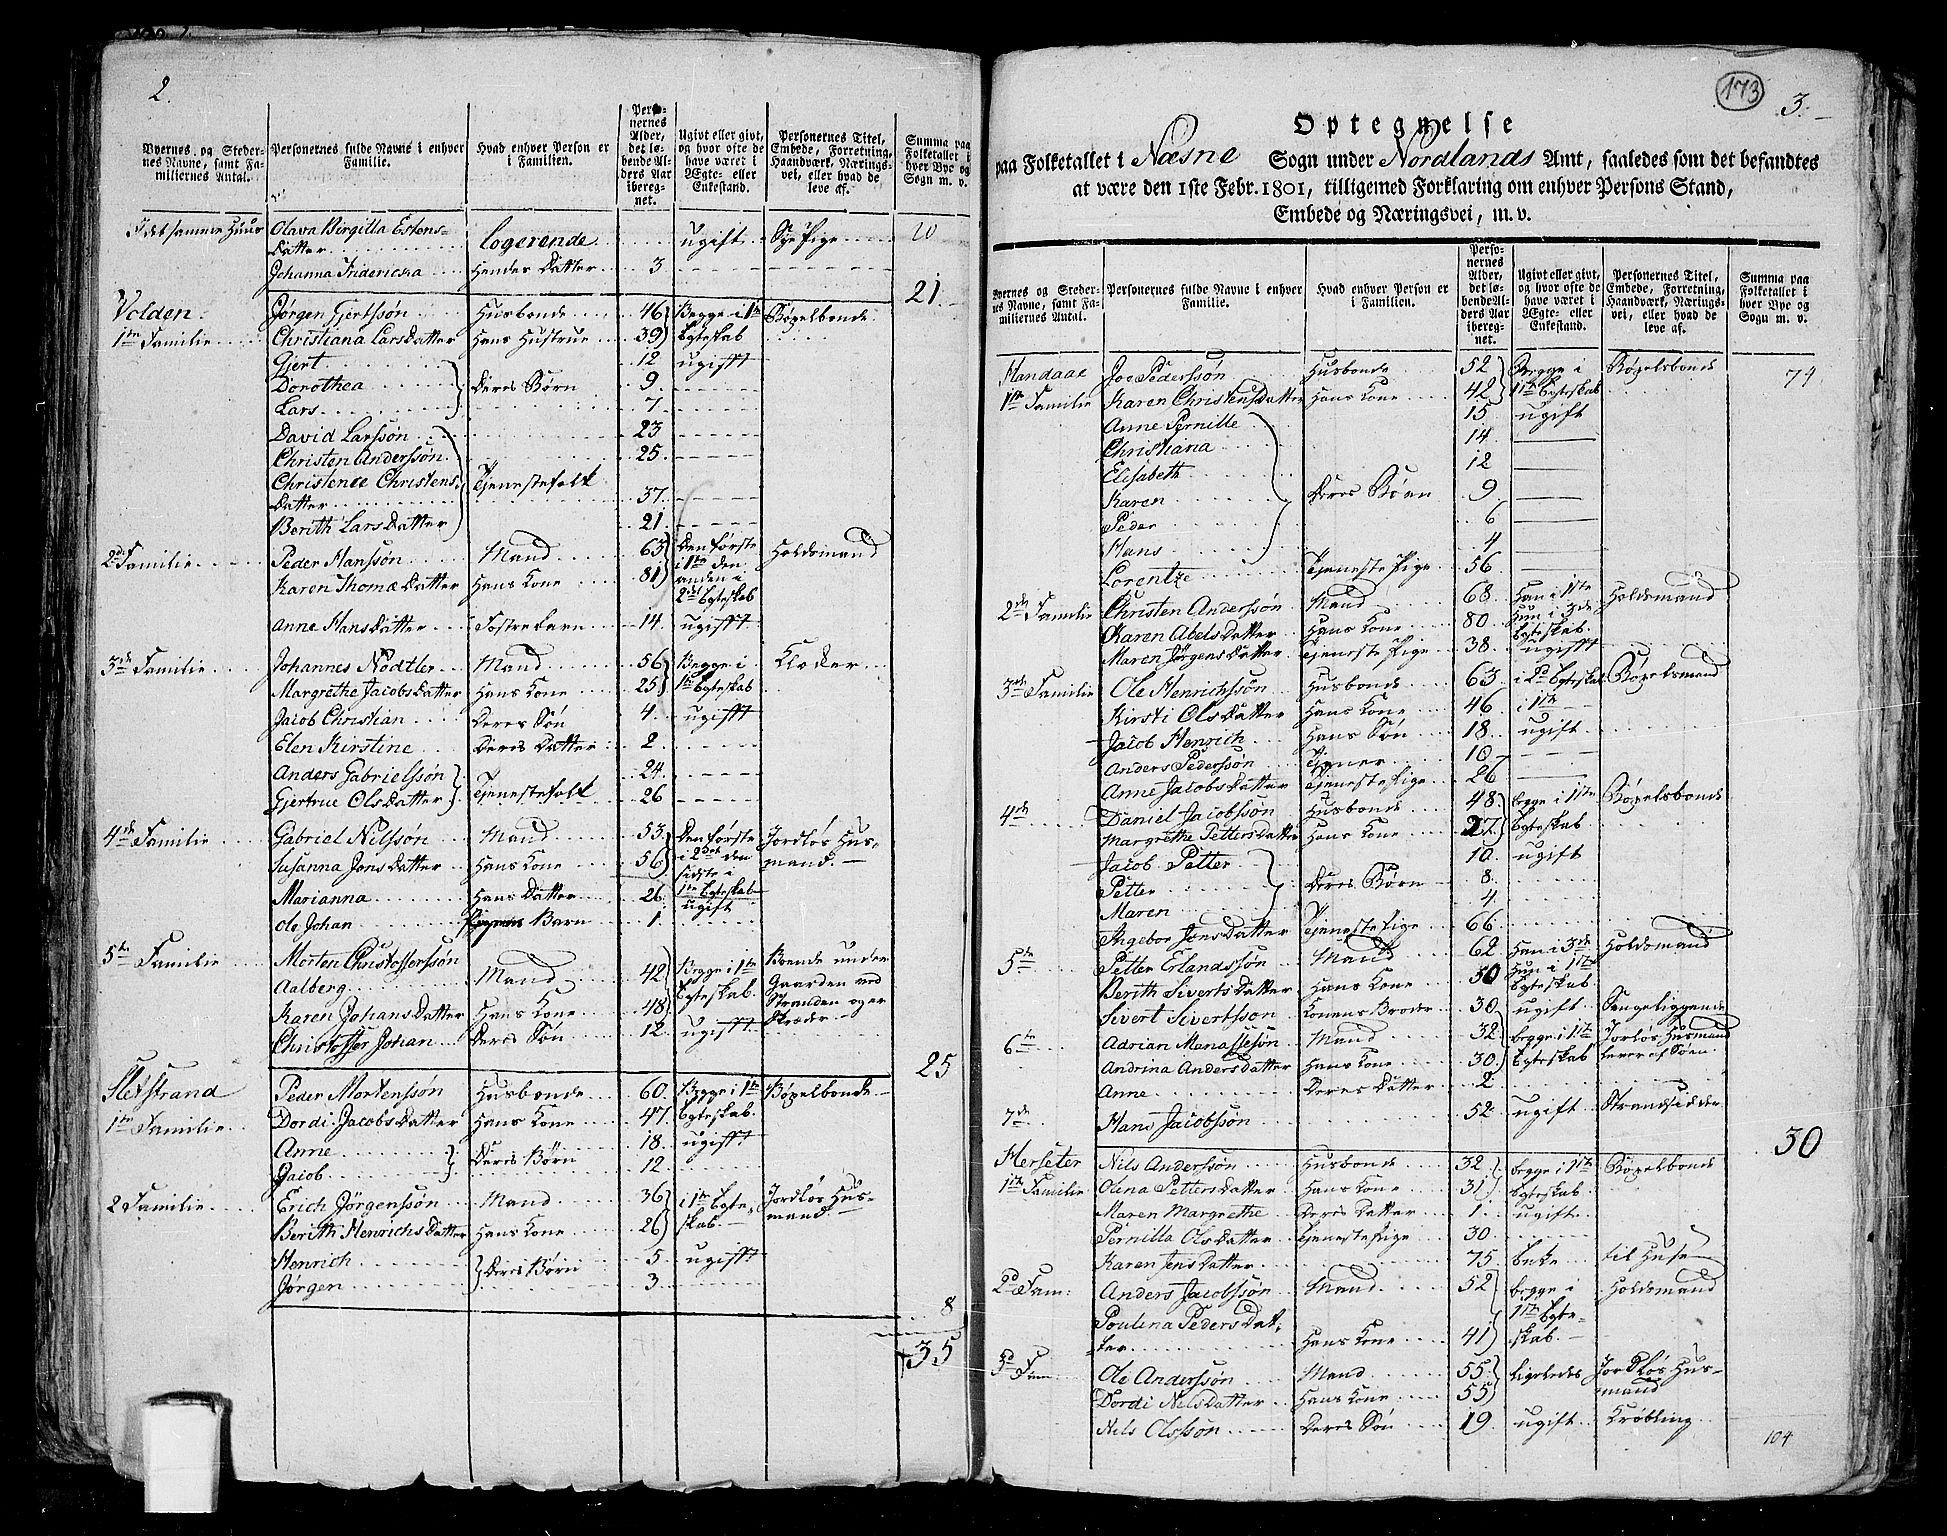 2.
Byernes og Steder-
nes Navne, samt Fa-
miliernes Antal.
Personernes fulde Navne i enhver
Familie.
Hvad enhver Person er
i Familien.
Perso-
nernes
Alder,
det lø-
bende Al-
ders Aar
ibereg-
net.
Ugivt eller givt,
og hvor ofte de
have været i
Ægte- eller
Enkestand.
Personernes Titel,
Embede, Forretning,
Haandværk, Nærings-
vei, eller hvad de
leve af.
Summa paa
Folketallet i
hver Bye og
Sogn m. v.
I det samme Huus Olava Birgilla Estens-
Datter logerende ugift Sye Pige 20
Johanna Fridericha Hendes Datter 3
21.
Volden. Jørgen Gjertssøn Husbonde 46 Begge i 1te Bøxelbonde
1te Familie Christiana Larsdatter Hans Hustrue 39 Egteskab
Gjert 12 ugifft
Dorothea Deres Børn 9
Lars 7
David Larssøn 23
Christen Anderssøn 25
Christence Christens Tjenestefolk
Datter 37
Berith Larsdatter 21
2d Familie Peder Hanssøn Mand 63 Den første Holdsmand
Karen Thomædatter Hans Kone 81 i 1te den
anden i
2det Egteskab
Anne Hansdatter Fosterbarn 14 ugifft
3de Familie Johannes Nodtler Mand 56 Begge i
Margrethe Jacobsdatter Hans Kone 25 1te Egteskab
Jacob Christian Deres Søn 4 ugifft
Elen Kirstine Deres Datter 2
Anders Gabrielssøn 24
Gjertrue Olsdatter Tjenestefolk 26
4de Familie Gabriel Nilssøn Mand 53 Den første Jordløs Hus-
Susanna Jonsdatter Hans Kone 56 i 2det den mand.
sidste i
Marianna Hans Datter 26 1te Egteskab
Ole Johan Barn 1 ugift
5te Familie Morten Christofferssøn
Aalberg Mand 42 Begge i 1te Boende under
Egteskab Gaarden ved
Karen Johansdatter Hans Kone 48 Stranden og er
Christoffer Johan Deres Søn 12 ugifft
25
Sletstrand Peder Mortenssøn Husbonde 60 Begge i 1te Bøxelbonde
1te Familie Dordi Jacobsdatter Hans Kone 47 Egteskab
Anne 18 ugifft
Jacob Deres Børn 12
2 Familie Erich Jørgenssøn Mand 36 i 1te Egte- Jordløs Hus-
Berith Henrichsdatter Hans Kone 26 skab mand.
Henrich 5 ugifft
Jørgen Deres Børn 3
8
35
173
3.
Optegnelse
paa Folketallet i Næsne Sogn under Nordlands Amt, saaledes som det befandtes
at være den 1ste Febr. 1801, tilligemed Forklaring om enhver Persons Stand,
Embede og Næringsvei, m. v.
Byernes og Steder-
nes Navne, samt Fa-
miliernes Antal.
Personernes fulde Navne i enhver
Familie.
Hvad enhver Person er
i Familien.
Perso-
nernes
Alder,
det lø-
bende Al-
ders Aar
ibereg-
net.
Ugivt eller givt,
og hvor ofte de
have været i
Ægte- eller
Enkestand.
Personernes Titel,
Embede, Forretning,
Haandværk, Nærings-
vei, eller hvad de
leve af.
Summa paa
Folketallet i
hver Bye og
Sogn m. v.
Handaae Joe Pederssøn Husbonde 52 Begge i Bøxelsbonde 74
1te Familie Karen Christensdatter Hans Kone 42 1te Egteskab
Anne Pernille 15 ugift
Christiana 14
Elisabeth 12
Karen Deres Børn 9
Peder 6
Hans 4
Lorentze Tjeneste Pige 56
2de Familie Christen Anderssøn Mand 68 Han i 1te Holdsmand
Karen Abelsdatter Hans Kone 80 Hun i 3de
Egteskab
Maren Jørgensdatter Tjeneste Pige 38 ugifft
3de Familie Ole Henrichssøn Husbonde 63 i 2d Egteskab Bøxelsmand
Kirsti Olsdatter Hans Kone 46 i 1te
Jacob Henrich Hans Søn 18 ugift
Anders Pederssøn Tjener 10
Anne Jacobsdatter Tjeneste Pige 26
4de Daniel Jacobssøn Husbonde 48 begge i 1te Bøxelsbonde
Margrethe Pettersdatter Hans Kone 27 Egteskab
Jacob Petter 10 ugift
Petter Deres Børn 8
Maren 4
Ingebor Jonsdatter Tjenestepige 66
5te Petter Erlandssøn Mand 62 Han i 3de Holdsmand
Berith Sivertsdatter Hans Kone 50 Hun i 1te
Egteskab
Sivert Sivertsson Konens Broder 30 ugift Sengeliggende
6te Adrian Manassesøn Mand 32 begge i 1te Jorløs Husmand
Andrina Andersdatter Hans Kone 30 Egteskab lever af Søen
Anne Deres Datter 2
7de Hans Jacobssøn 52 ugift Strandsidder
30
Herseter Nils Anderssøn Husbonde 32 begge i 1te Bøxelbonde
1te Familie Olina Pettersdatter Hans Kone 31 Egteskab
Maren Margrethe Deres Datter 1 ugift
Pernilla Olsdatter Tjenestepige 30
Karen Jensdatter 75 Enke til Huse
2d Fam: Anders Jacobssøn Mand 52 begge i Holdsmand
Poulina Peders dat- 1te Egte-
ter Hans Kone 41 skab.
3d Fam Ole Anderssøn Mand 55 ligeledes Jordløs Hus-
Dordi Nilsdatter Hans Kone 55 mand
Nils Olssøn Deres Søn 19 ugift Krøbling
104